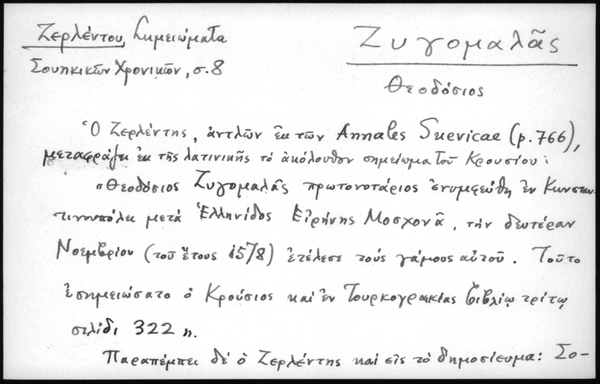 Ζερλέντου, Σημειώματα
Σουηκικῶν Χρονικῶν, σ. 8
Ζυγομαλᾶς
Θεοδόσιος
Ὁ Ζερλέντης, ἀντλῶν ἐκ τῶν Annales Suevicae (p. 766),
μεταφράζει ἐκ τῆς λατινικῆς τὸ ἀκόλουθον σημείωμα τοῦ Κρουσίου:
"Θεοδόσιος Ζυγομαλᾶς πρωτονοτάριος ἐνυμφεύθη ἐν Κωνσταν-
τινουπόλει μετὰ Ἑλληνίδος Εἰρήνης Μοσχονᾶ, τὴν δευτέραν
Νοεμβρίου (τοῦ ἔτους 1578) ἐτέλεσε τοὺς γάμους αὐτοῦ. Τοῦτο
ἐσημειώσατο ὁ Κρούσιος καὶ ἐν Τουρκογραικίας βιβλίῳ τρίτῳ
σελίδι 322 ".
Παραπέμπει δὲ ὁ Ζερλέντης καὶ εἰς τὸ δημοσίευμα: Σο-